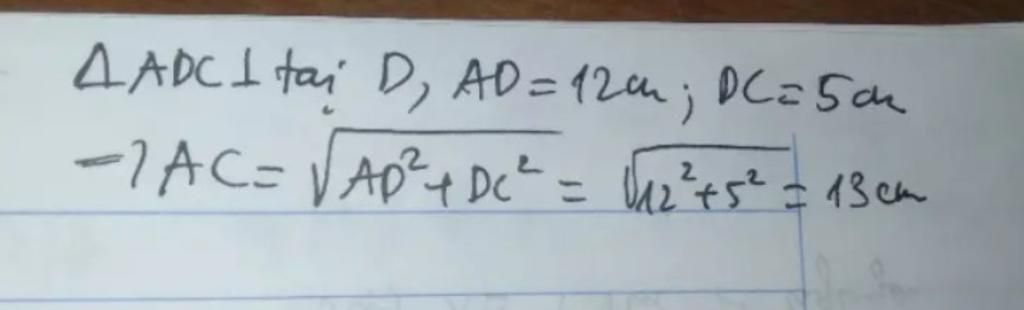 △ADC⊥ tại D, AD = 12cm; DC = 5cm
→ AC = √(AD² + DC²) = √(12² + 5²) = 13cm